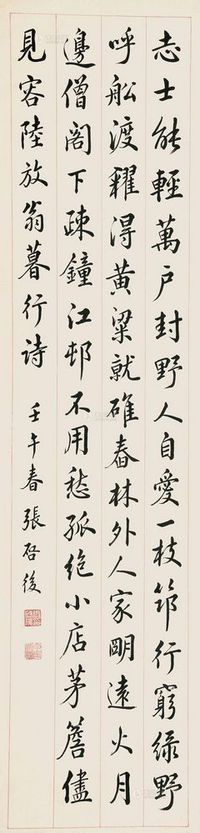 志士能輕萬户封野人自愛一枝筇行窮綠野
呼舩渡糴得黄粱就碓舂林外人家朙遠火月
邊僧閣下疎鐘江邨不用愁孤絶小店茅簷儘
見容陸放翁暮行詩
壬午春張啓後